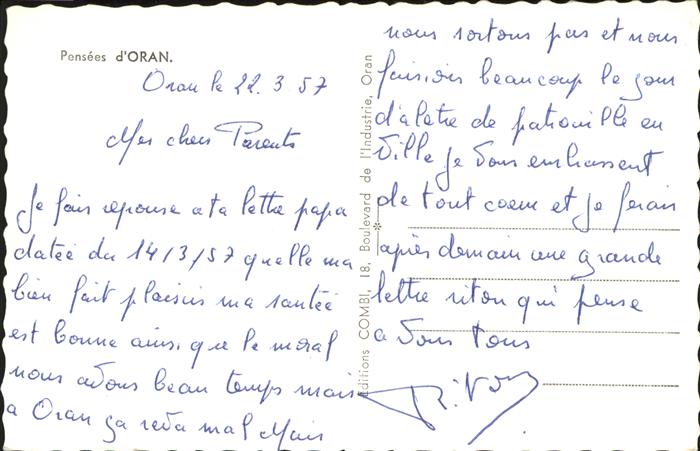 Pensées d'ORAN.
Oran le 22.3 57
Mes chers Parents
Je fais reponse a ta lettre papa
datée du 14/3/57 quelle ma
bien fait plaisir ma santée
est bonne ainsi que le moral
nous avons beau temps mais
a Oran ça reva mal Mais
nous sortons pas et nous
faisions beaucoup le jour
d'aletre de patrouille en
Ville Je Vous embrassent
de tout coeur et je ferais
après demain une grande
lettre riton qui pense
a Vous tous
Riton
Editions COMBI, 18, Boulevard de l'Industrie, Oran